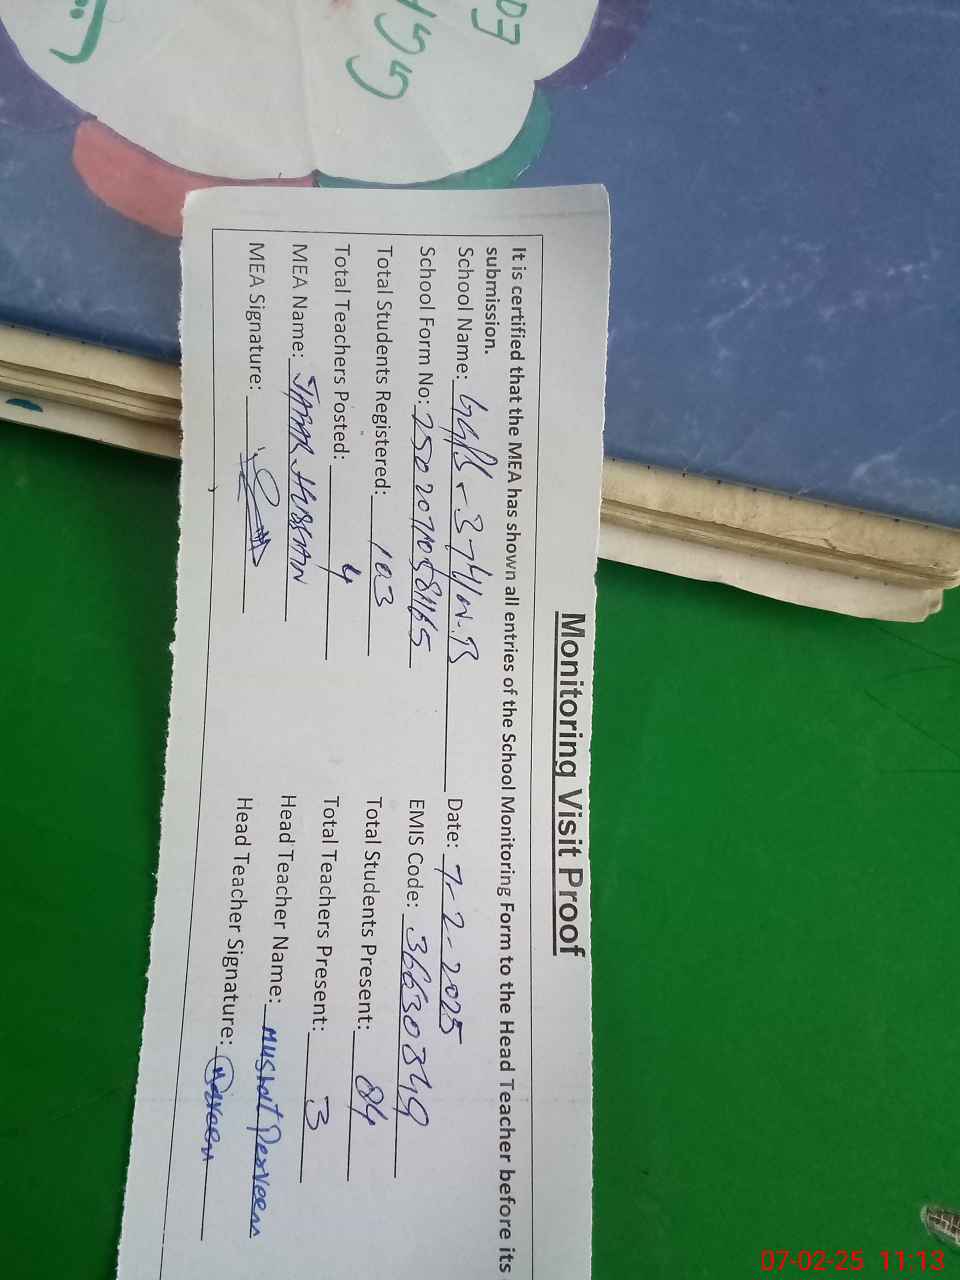 Monitoring Visit Proof
It is certified that the MEA has shown all entries of the School Monitoring Form to the Head Teacher before its
submission.
School Name: GGPS - 374/W.B Date: 7-2-2025
School Form No: EMIS Code: 36630849
Total Students Registered: 103 Total Students Present: 84
Total Teachers Posted: 4 Total Teachers Present: 3
MEA Name: HUSSAIN Head Teacher Name: Perveen
MEA Signature: Head Teacher Signature:
07-02-25 11:13